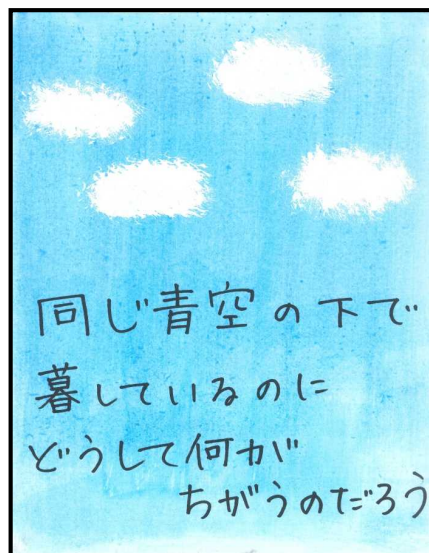 同じ青空の下で
暮しているのに
どうして何が
ちがうのだろう